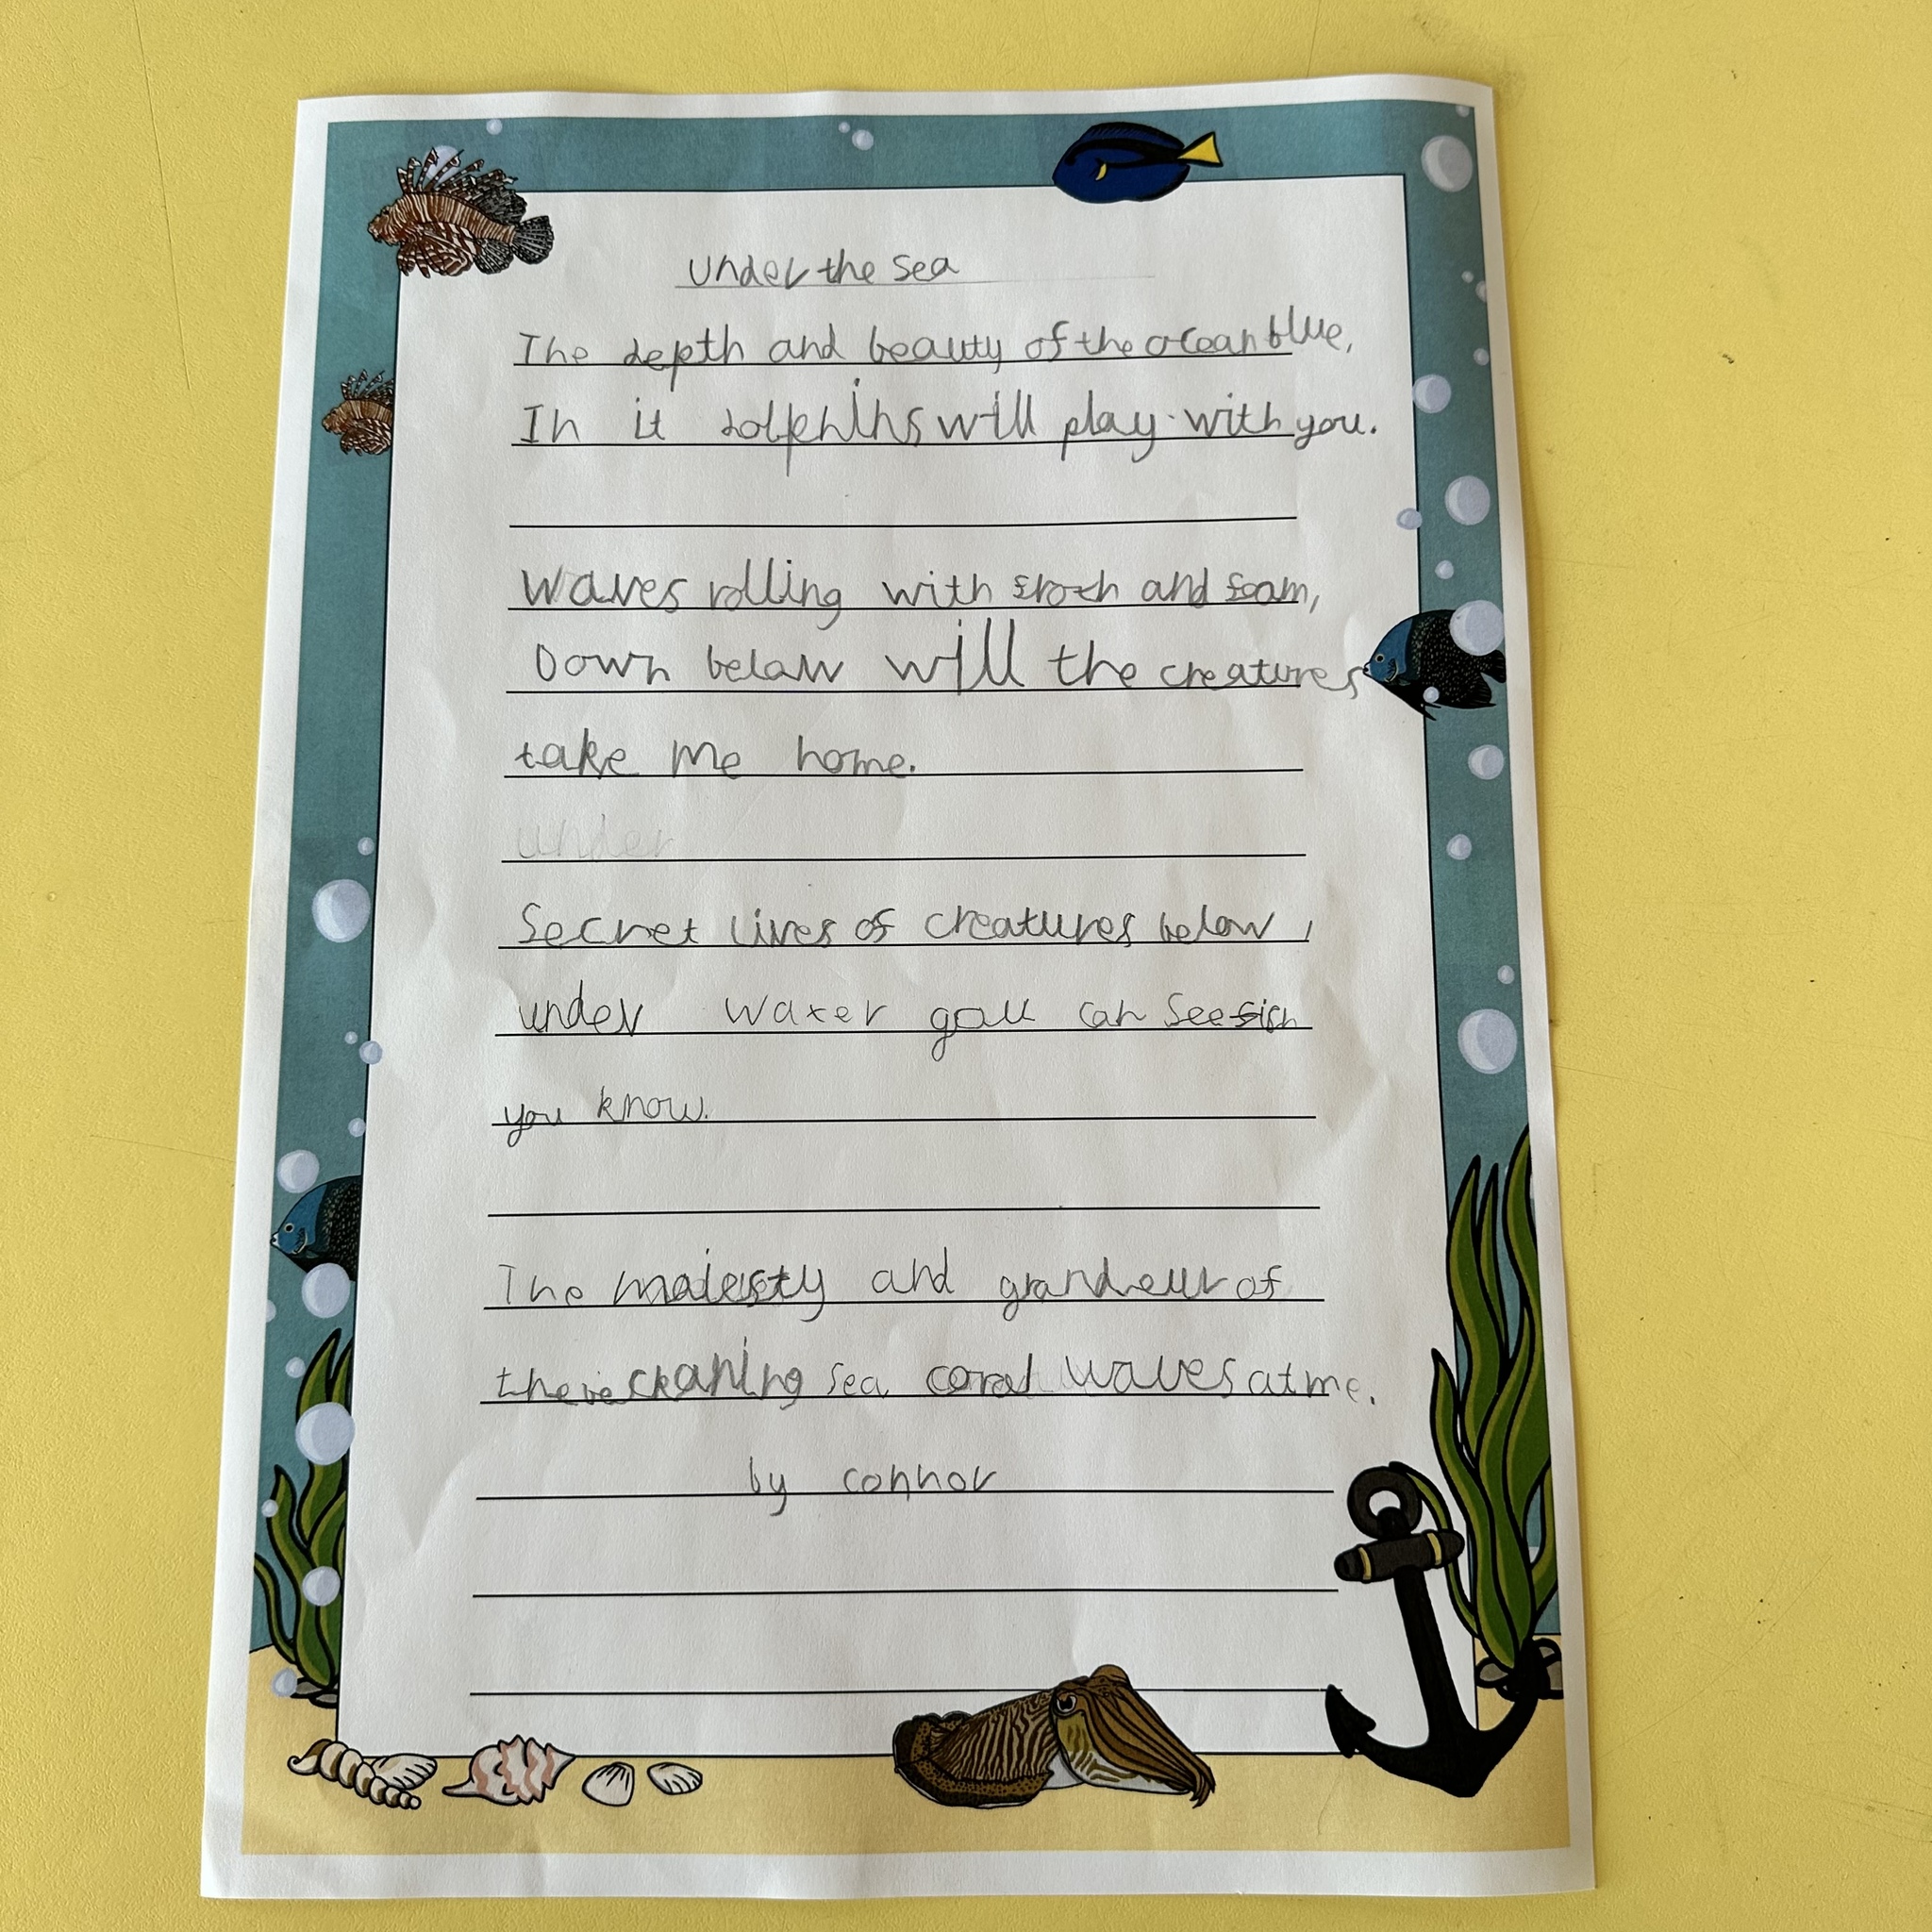 Under the sea
The depth and beauty of the ocean blue,
In it dolphins will play with you.
Waves rolling with froth and foam,
Down below will the creatures
take me home.
under
Secret lives of creatures below,
under water can see fish
you know.
The majesty and grandeur of
the sea coral waves at me.
by connor